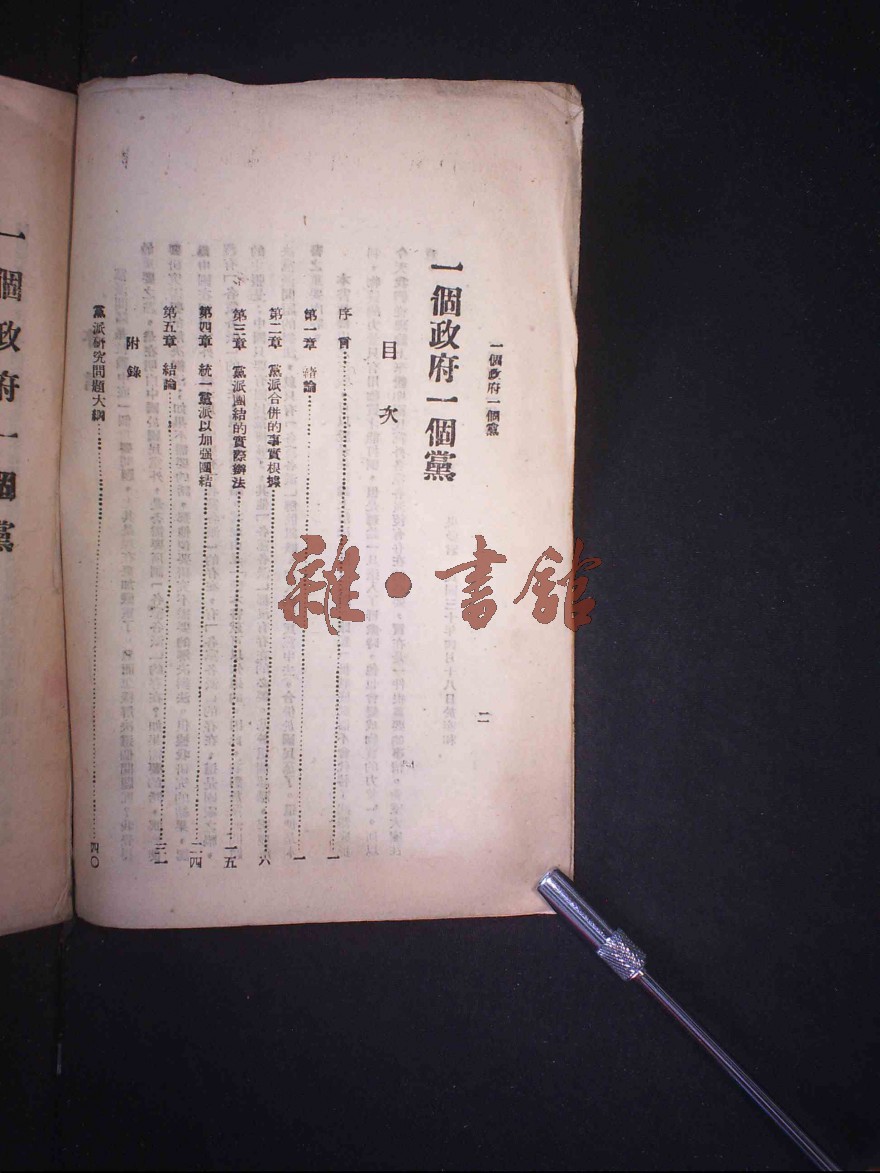 一個政府一個黨
二
一個政府一個黨
目次
序言………一
第一章 緒論………一
第二章 黨派合併的事實根據………六
第三章 黨派團結的實際辦法………一五
第四章 統一黨派以加强團結………二四
第五章 結論………三一
附錄
黨派研究問題大綱………四〇
一個政府一個黨
雜·書館